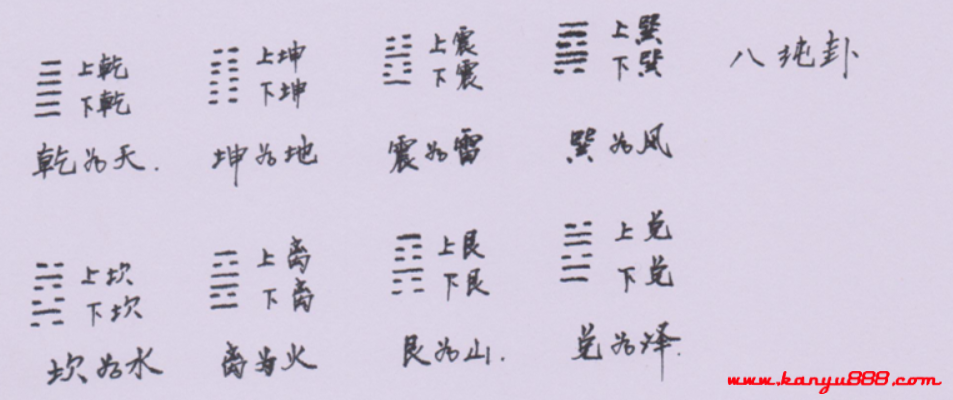 上乾 上坤 上震 上巽 八纯卦
下乾 下坤 下震 下巽
乾为天. 坤为地 震为雷 巽为风
上坎 上离 上艮 上兑
下坎 下离 下艮 下兑
坎为水 离为火 艮为山. 兑为泽.
www.kanyu888.com